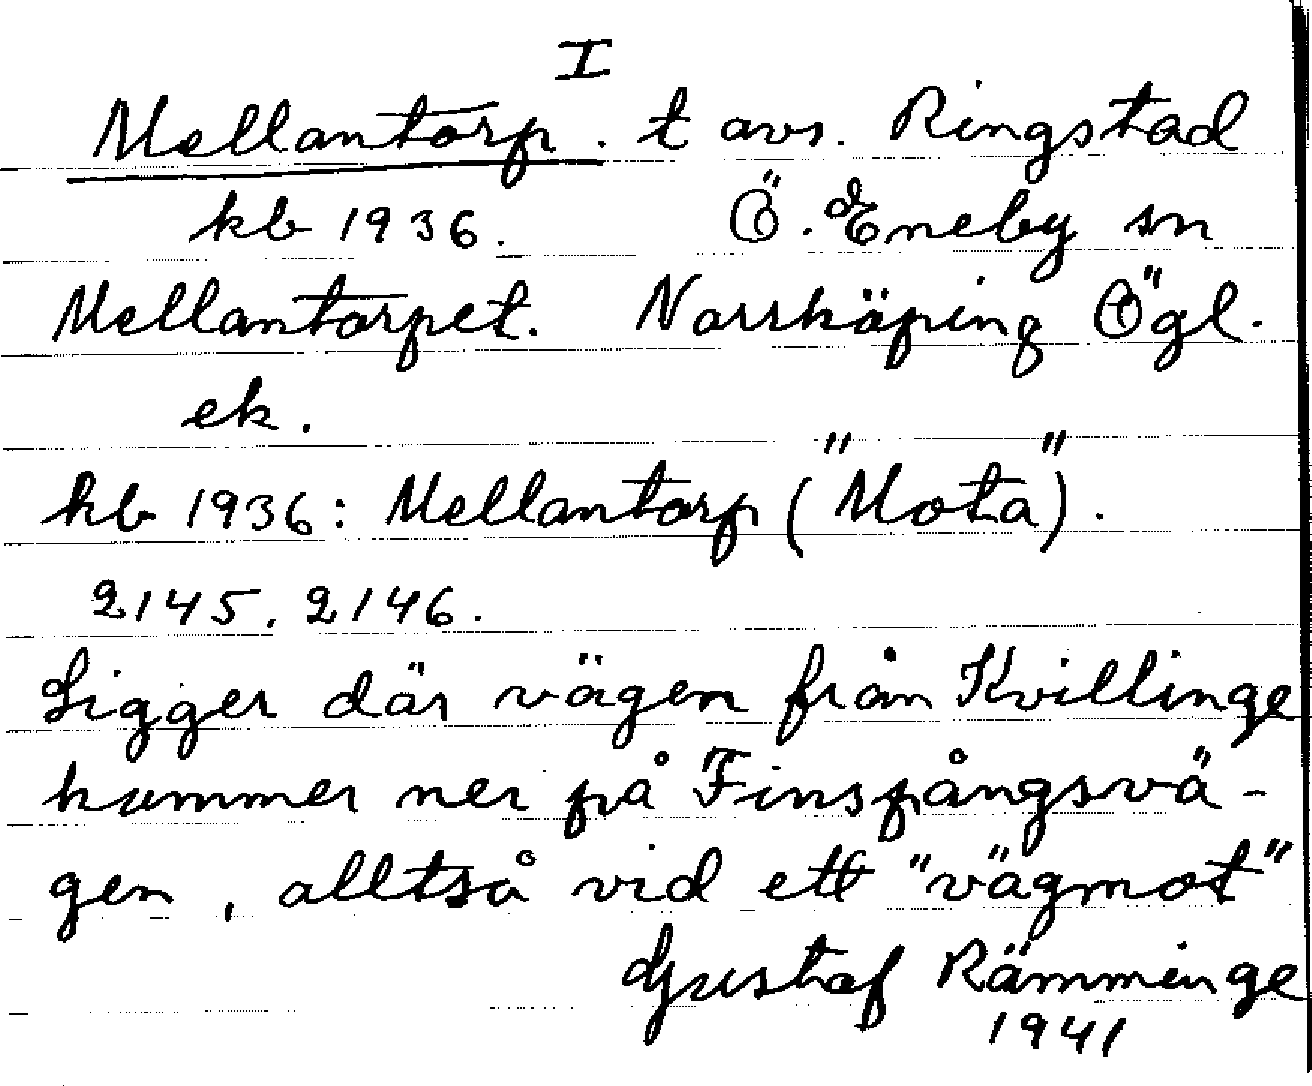 I
Mellantorp. t avs. Ringstad
kb 1936. Ö. Eneby sn
Mellantorpet. Norrköping Ögl.
ek.
kb 1936: Mellantorp ("Mota").
2145. 2146.
Ligger där vägen från Kvillinge
kommer ner på Finspångsvä-
gen, alltså vid ett "vägmot"
Gustaf Rämminge
1941